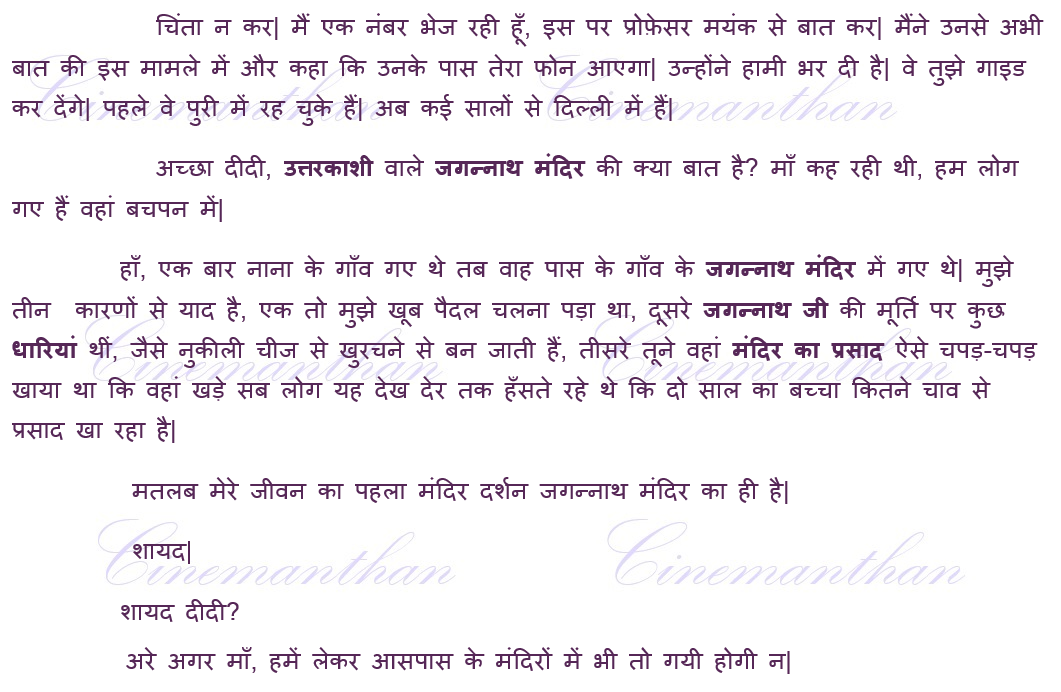 चिंता न कर| मैं एक नंबर भेज रही हूँ, इस पर प्रोफ़ेसर मयंक से बात कर| मैंने उनसे अभी
बात की इस मामले में और कहा कि उनके पास तेरा फोन आएगा| उन्होंने हामी भर दी है| वे तुझे गाइड
कर देंगे| पहले वे पुरी में रह चुके हैं| अब कई सालों से दिल्ली में हैं|
Cinemanthan Cinemanthan
अच्छा दीदी, उत्तरकाशी वाले जगन्नाथ मंदिर की क्या बात है? माँ कह रही थी, हम लोग
गए हैं वहां बचपन में|
हाँ, एक बार नाना के गाँव गए थे तब वाह पास के गाँव के जगन्नाथ मंदिर में गए थे| मुझे
तीन कारणों से याद है, एक तो मुझे खूब पैदल चलना पड़ा था, दूसरे जगन्नाथ जी की मूर्ति पर कुछ
धारियां थीं, जैसे नुकीली चीज से खुरचने से बन जाती हैं, तीसरे तूने वहां मंदिर का प्रसाद ऐसे चपड़-चपड़
Cinemanthan Cinemanthan
खाया था कि वहां खड़े सब लोग यह देख देर तक हँसते रहे थे कि दो साल का बच्चा कितने चाव से
प्रसाद खा रहा है|
मतलब मेरे जीवन का पहला मंदिर दर्शन जगन्नाथ मंदिर का ही है|
शायद|
Cinemanthan Cinemanthan
शायद दीदी?
अरे अगर माँ, हमें लेकर आसपास के मंदिरों में भी तो गयी होगी न|